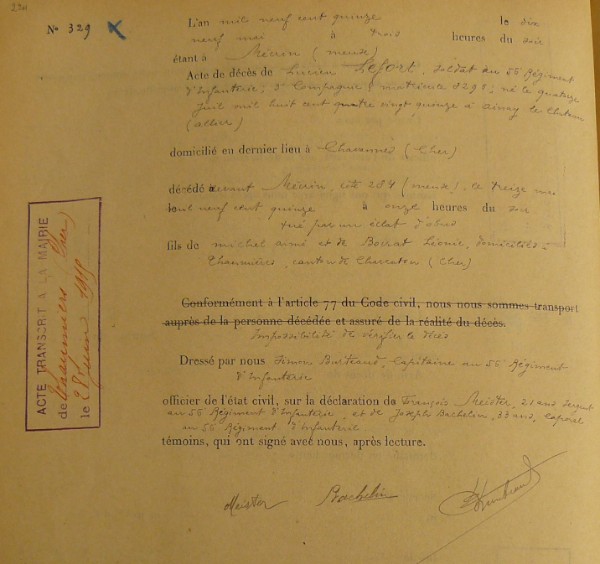 No 329
L'an mil neuf cent quinze le dix
neuf mai à trois heures du soir
étant à Ménin (meuse)
Acte de décès de Lucien Lefort, soldat au 56 Régiment
d'Infanterie, 3e Compagnie, matricule 8298, né le quatorze
Juil mil huit cent quatre vingt quinze à ainay le château
(allier)
domicilié en dernier lieu à Chavannes (Cher)
décédé devant cote 234 (meuse), le treize mai
mil neuf cent quinze à onze heures du soir
tué par un éclat d'obus
fils de michel aimé et de Boirat Léonie, domiciliés à
Chaumiers, canton de Charenton (Cher)
Conformément à l'article 77 du Code civil, nous nous sommes transport
auprès de la personne décédée et assuré de la réalité du décès.
Impossibilité de vérifier le décès
Dressé par nous Simon Capitaine au 56e Régiment
d'Infanterie
officier de l'état civil, sur la déclaration de François Meister, 21 ans sergent
au 56e Régiment d'Infanterie, et de Joseph Bachelin, 33 ans, Caporal
au 56 Régiment d'Infanterie
témoins, qui ont signé avec nous, après lecture.
Meister Bachelin
ACTE TRANSCRIT A LA MAIRIE
de Chaumiers (Cher)
le 28 juin 1915